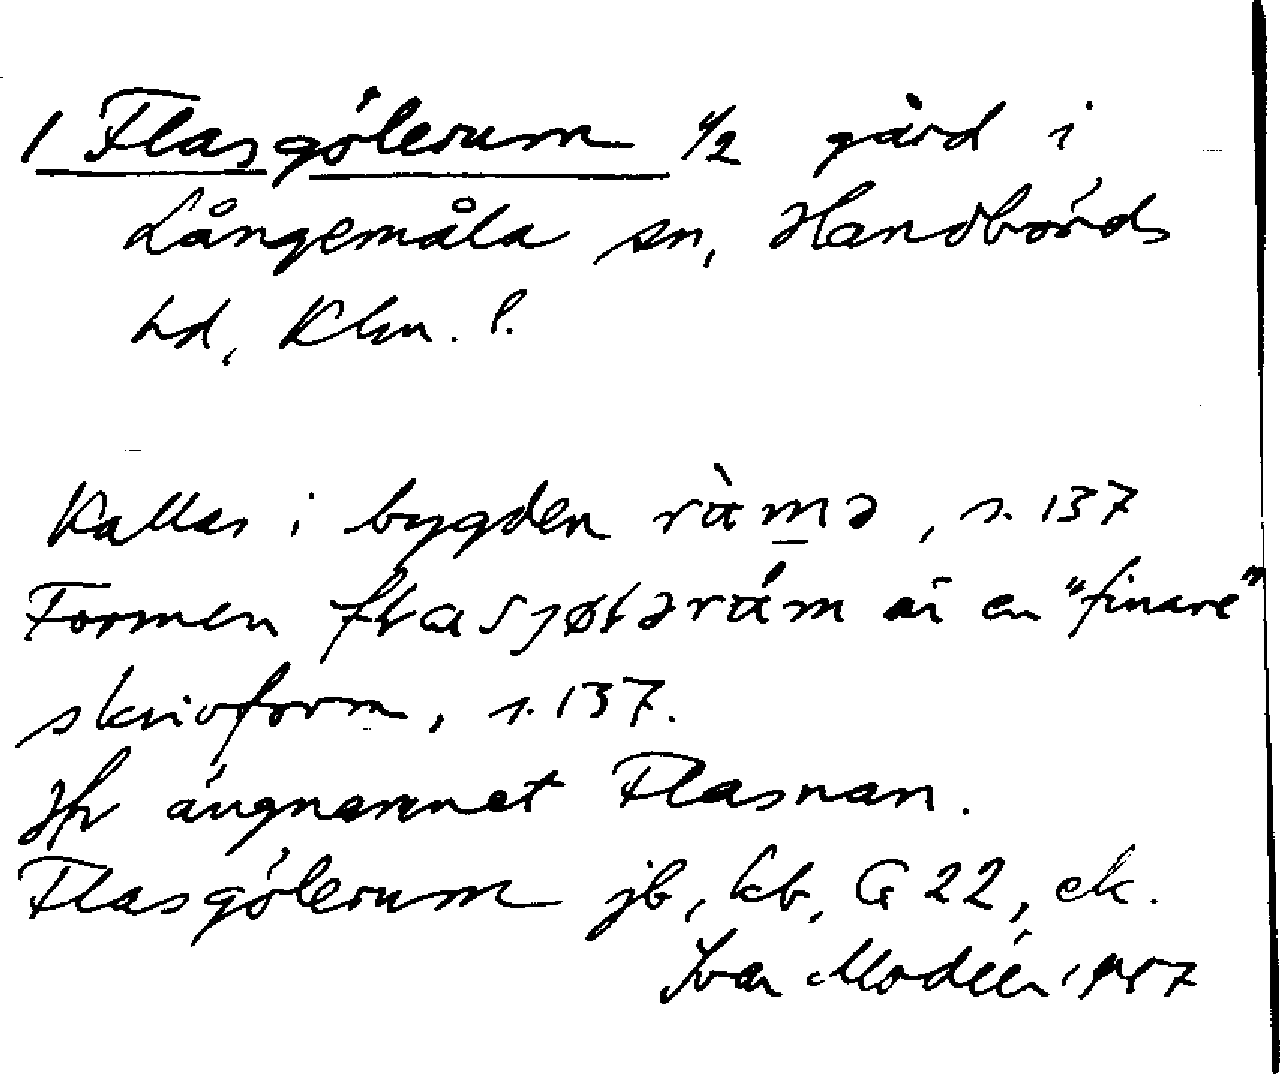 1 Flasgölerum 1/2 gård i
Långemåla sn, Handbörds
hd, Klm. l.
Kallas i bygden rὰmə, s. 137
Formen flasjøləràm är en "finare"
skrivform, s. 137.
Jfr ängnamnet Flasnan.
Flasgölerum jb, kb, G 22, ek.
Ivar Modéer 1937